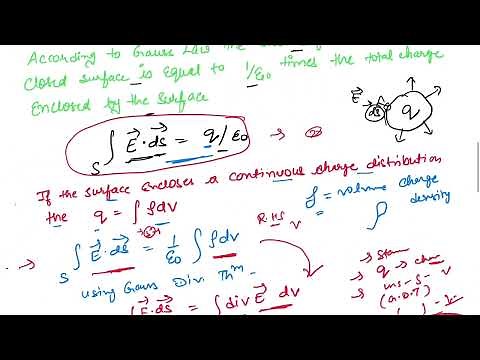 According to Gauss Law the
closed surface is equal to 1/ε0 times the total charge
Enclosed by the surface
∫S E⃗·ds⃗ = q/ε0
E⃗
ds
q
If the surface encloses a continuous charge distribution
the q = ∫ρdv
ρ = volume charge density
R.H.S
V
∫S E⃗·ds⃗ = 1/ε0 ∫ρdv
ρ
using Gauss Div Thm
∫E⃗·ds⃗ = ∫div E⃗ dv
q